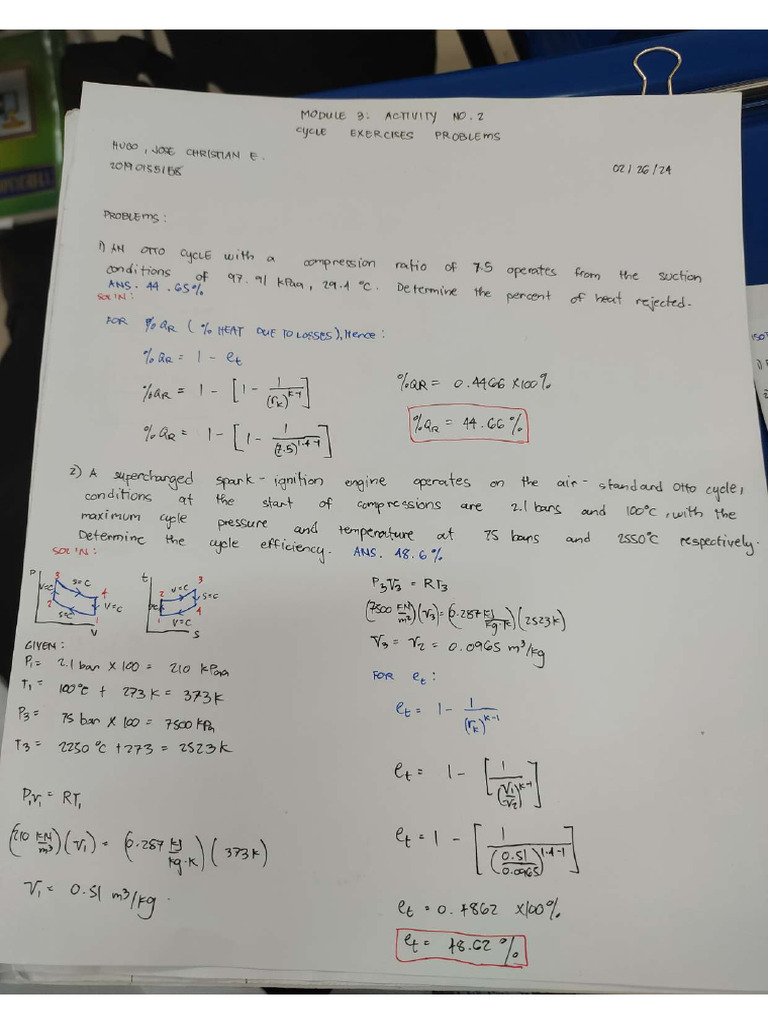 MODULE 3: ACTIVITY NO. 2
CYCLE EXERCISES PROBLEMS
HUGO, JOSE CHRISTIAN E.
20190155158
02/26/24
PROBLEMS:
1) AN OTTO CYCLE with a compression ratio of 7.5 operates from the suction
conditions of 97.91 kPaa, 29.4 °C. Determine the percent of heat rejected.
ANS. 44.65%
SOL'N:
FOR %QR (% HEAT DUE TO LOSSES), Hence:
%QR = 1 - et
%QR = 1 - [1 - 1/(rk)^k-1]
%QR = 1 - [1 - 1/(7.5)^1.4-1]
%QR = 0.4466 x100%
%QR = 44.66%
2) A supercharged spark-ignition engine operates on the air-standard Otto cycle,
conditions at the start of compressions are 2.1 bars and 100°C, with the
maximum cycle pressure and temperature at 75 bars and 2550°C respectively.
Determine the cycle efficiency. ANS. 48.6%
SOL'N:
P 3 S=C V=C 2 4 V=C S=C 1 V
t 3 V=C 2 S=C 4 V=C 1 S
GIVEN:
P1= 2.1 bar x 100 = 210 kPaa
T1= 100°C + 273K = 373K
P3= 75 bar x 100 = 7500 kPa
T3= 2250°C +273 = 2523K
P1V1 = RT1
(210 KN/m³)(V1) = (0.287 KJ/Kg·K)(373K)
V1= 0.51 m³/kg.
P3V3 = RT3
(7500 KN/m²)(V3)=(0.287 KJ/Kg·K)(2523K)
V3 = V2 = 0.0965 m³/kg
FOR et:
et = 1 - 1/(rk)^k-1
et = 1 - [1/(V1/V2)^k-1]
et = 1 - [1/(0.51/0.0965)^1.4-1]
et = 0.4862 x100%
et = 48.62%